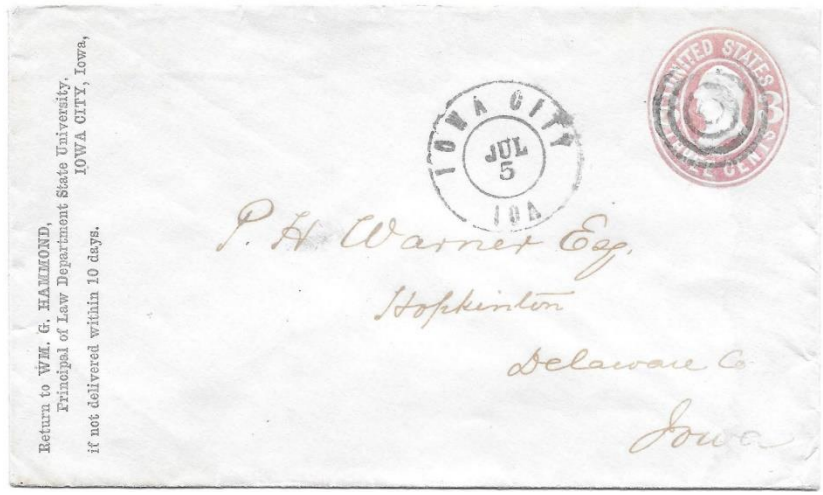 Return to WM. G. HAMMOND,
Principal of Law Department State University,
IOWA CITY, Iowa,
if not delivered within 10 days.
IOWA CITY
JUL
5
IOA
UNITED STATES
THREE CENTS
3
P. H. Warner Esq.
Hopkinton
Delaware Co
Iowa